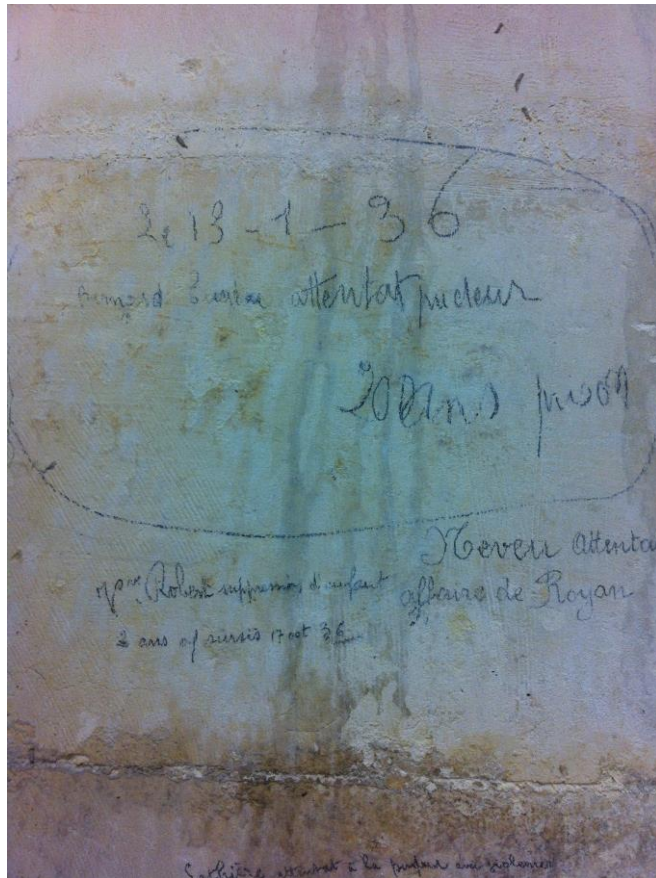 Le 13 - 1 - 36
attentat pudeur
20 ans prison
Neveu Attenta
affaire de Royan
Robert suppression d'enfant
2 ans af sursis 17 oct 36
attentat à la pudeur avec violences